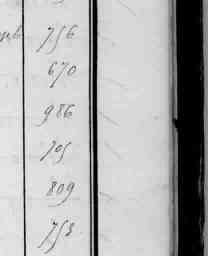 756
670
986
705
809
758